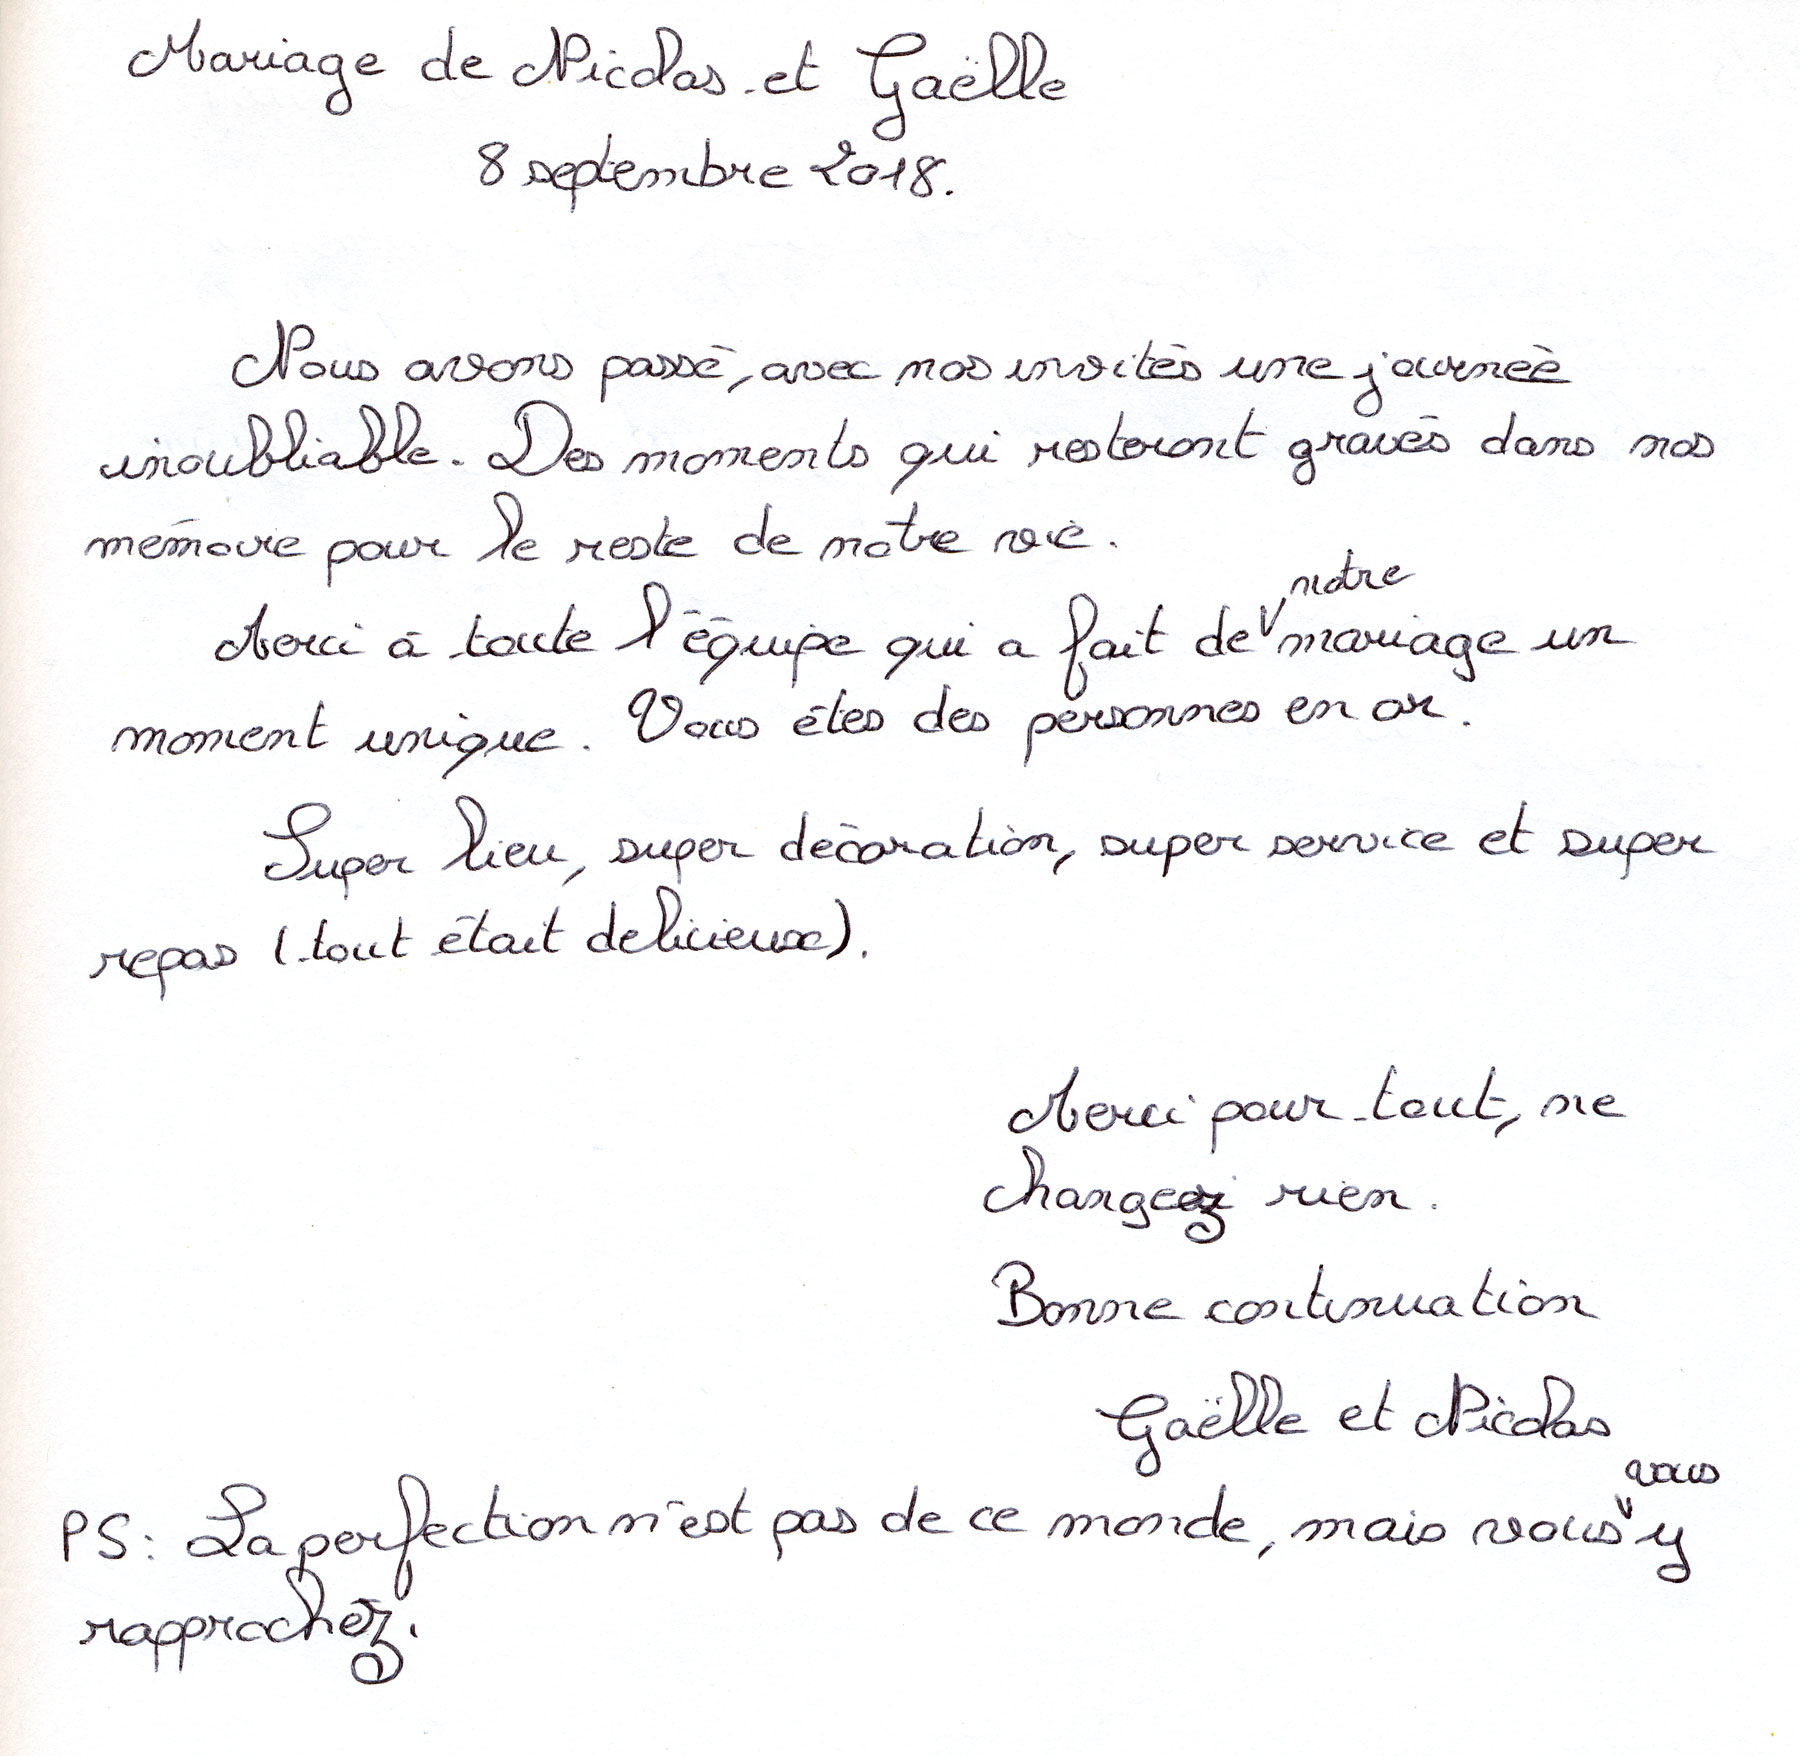 Mariage de Nicolas et Gaëlle
8 septembre 2018.
Nous avons passé, avec nos invités une journée
inoubliable. Des moments qui resteront gravés dans nos
mémoire pour le reste de notre vie.
Merci à toute l'équipe qui a fait de notre mariage un
moment unique. Vous êtes des personnes en or.
Super lieu, super décoration, super service et super
repas (tout était delicieux).
Merci pour tout, ne
changez rien.
Bonne continuation
Gaëlle et Nicolas
PS: La perfection n'est pas de ce monde, mais vous vous y
rapprochez.